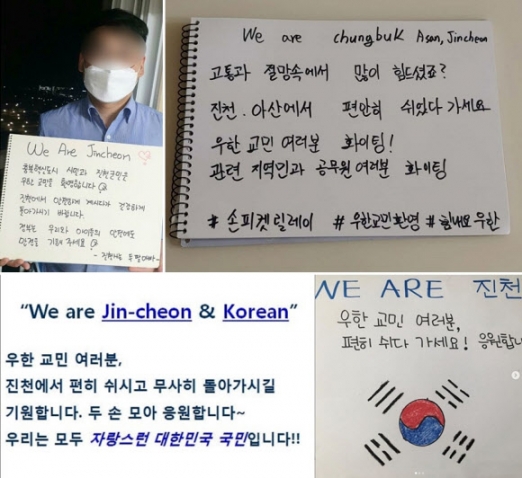 We Are Jincheon
충북혁신도시 시민과 진천군민은
우한 교민을 환영합니다
진천에서 안전하게 계시다가 건강하게
돌아가시기 바랍니다.
정부는 우리와 아이들의 안전에도
만전을 기해 주세요
We are chungbuk Asan, Jincheon
고통과 절망속에서 많이 힘드셨죠?
진천. 아산에서 편안히 쉬었다 가세요
우한 교민 여러분 화이팅!
관련 지역인과 공무원 여러분 화이팅
#손피켓릴레이 #우한교민환영 #힘내요 우한
“We are Jin-cheon & Korean”
우한 교민 여러분,
진천에서 편히 쉬시고 무사히 돌아가시길
기원합니다. 두 손 모아 응원합니다~
우리는 모두 자랑스런 대한민국 국민입니다!!
WE ARE 진천
우한 교민 여러분,
편히 쉬다 가세요! 응원합니